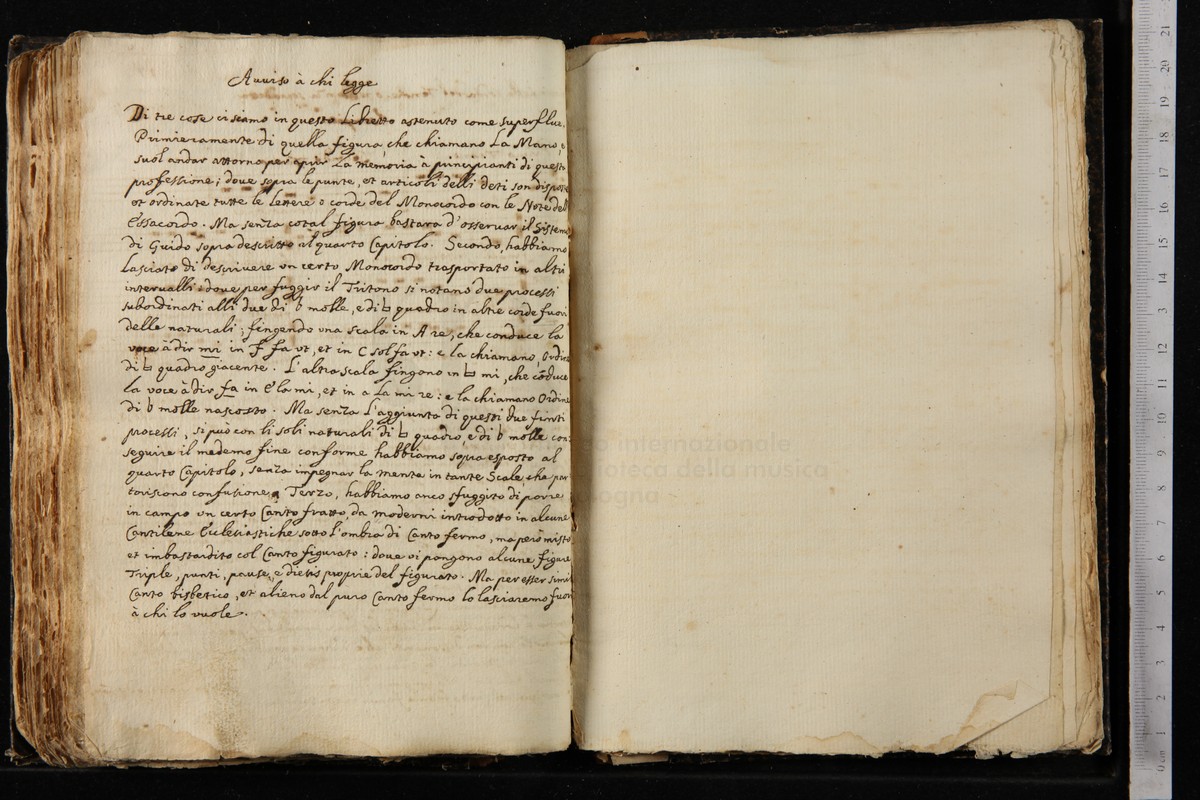 Avviso à chi legge
Di tre cose ci siamo in questo Libretto astenuto come superflue.
Primieramente di quella figura, che chiamano La Mano,
suol andar attorno per aprir La memoria à principianti di questa
professione; doue sopra le punte, et articoli delli deti son disposte
et ordinate tutte le lettere e corde del Monocordo con le Note dell
Essacordo. Ma senza cotal figura bastarà d'osseruar il Sistema
di Guido sopra descritto al quarto Capitolo. Secondo, habbiamo
Lasciato di descriuere un certo Monocordo trasportato in altri
interualli: doue per fuggir il Tritono si notano due processi
subordinati alli due di b molle, e di ♮ quadro in altre corde fuori
delle naturali; fingendo una scala in A re, che conduce la
voce à dir mi in F fa vt, et in C sol fa vt: e la chiamano, Ordine
di ♮ quadro giacente. L'altra scala fingono in ♮ mi, che cōduce
la voce à dir fa in E la mi, et in a La mi re: e la chiamano Ordine
di b molle nascosto. Ma senza L'aggiunta di questi due finti
processi, si può con li soli naturali di ♮ quadro e di b molle con
seguire il medemo fine conforme habbiamo sopra esposto al
quarto Capitolo, senza impegnar la mente in tante Scale, che par
toriscono confusione. Terzo, habbiamo anco sfuggito di porre
in campo un certo Canto fratto, da moderni introdotto in alcune
Cantilene Ecclesiastiche sotto l'ombra di Canto fermo, ma però misto
et imbastardito col Canto figurato: doue vi pongono alcune figure
Triple, punti, pause, e diesis proprie del figurato. Ma per esser simil
Canto bisbetico, et alieno dal puro Canto fermo lo lasciaremo fuori
à chi lo vuole.
internazionale
biblioteca della musica